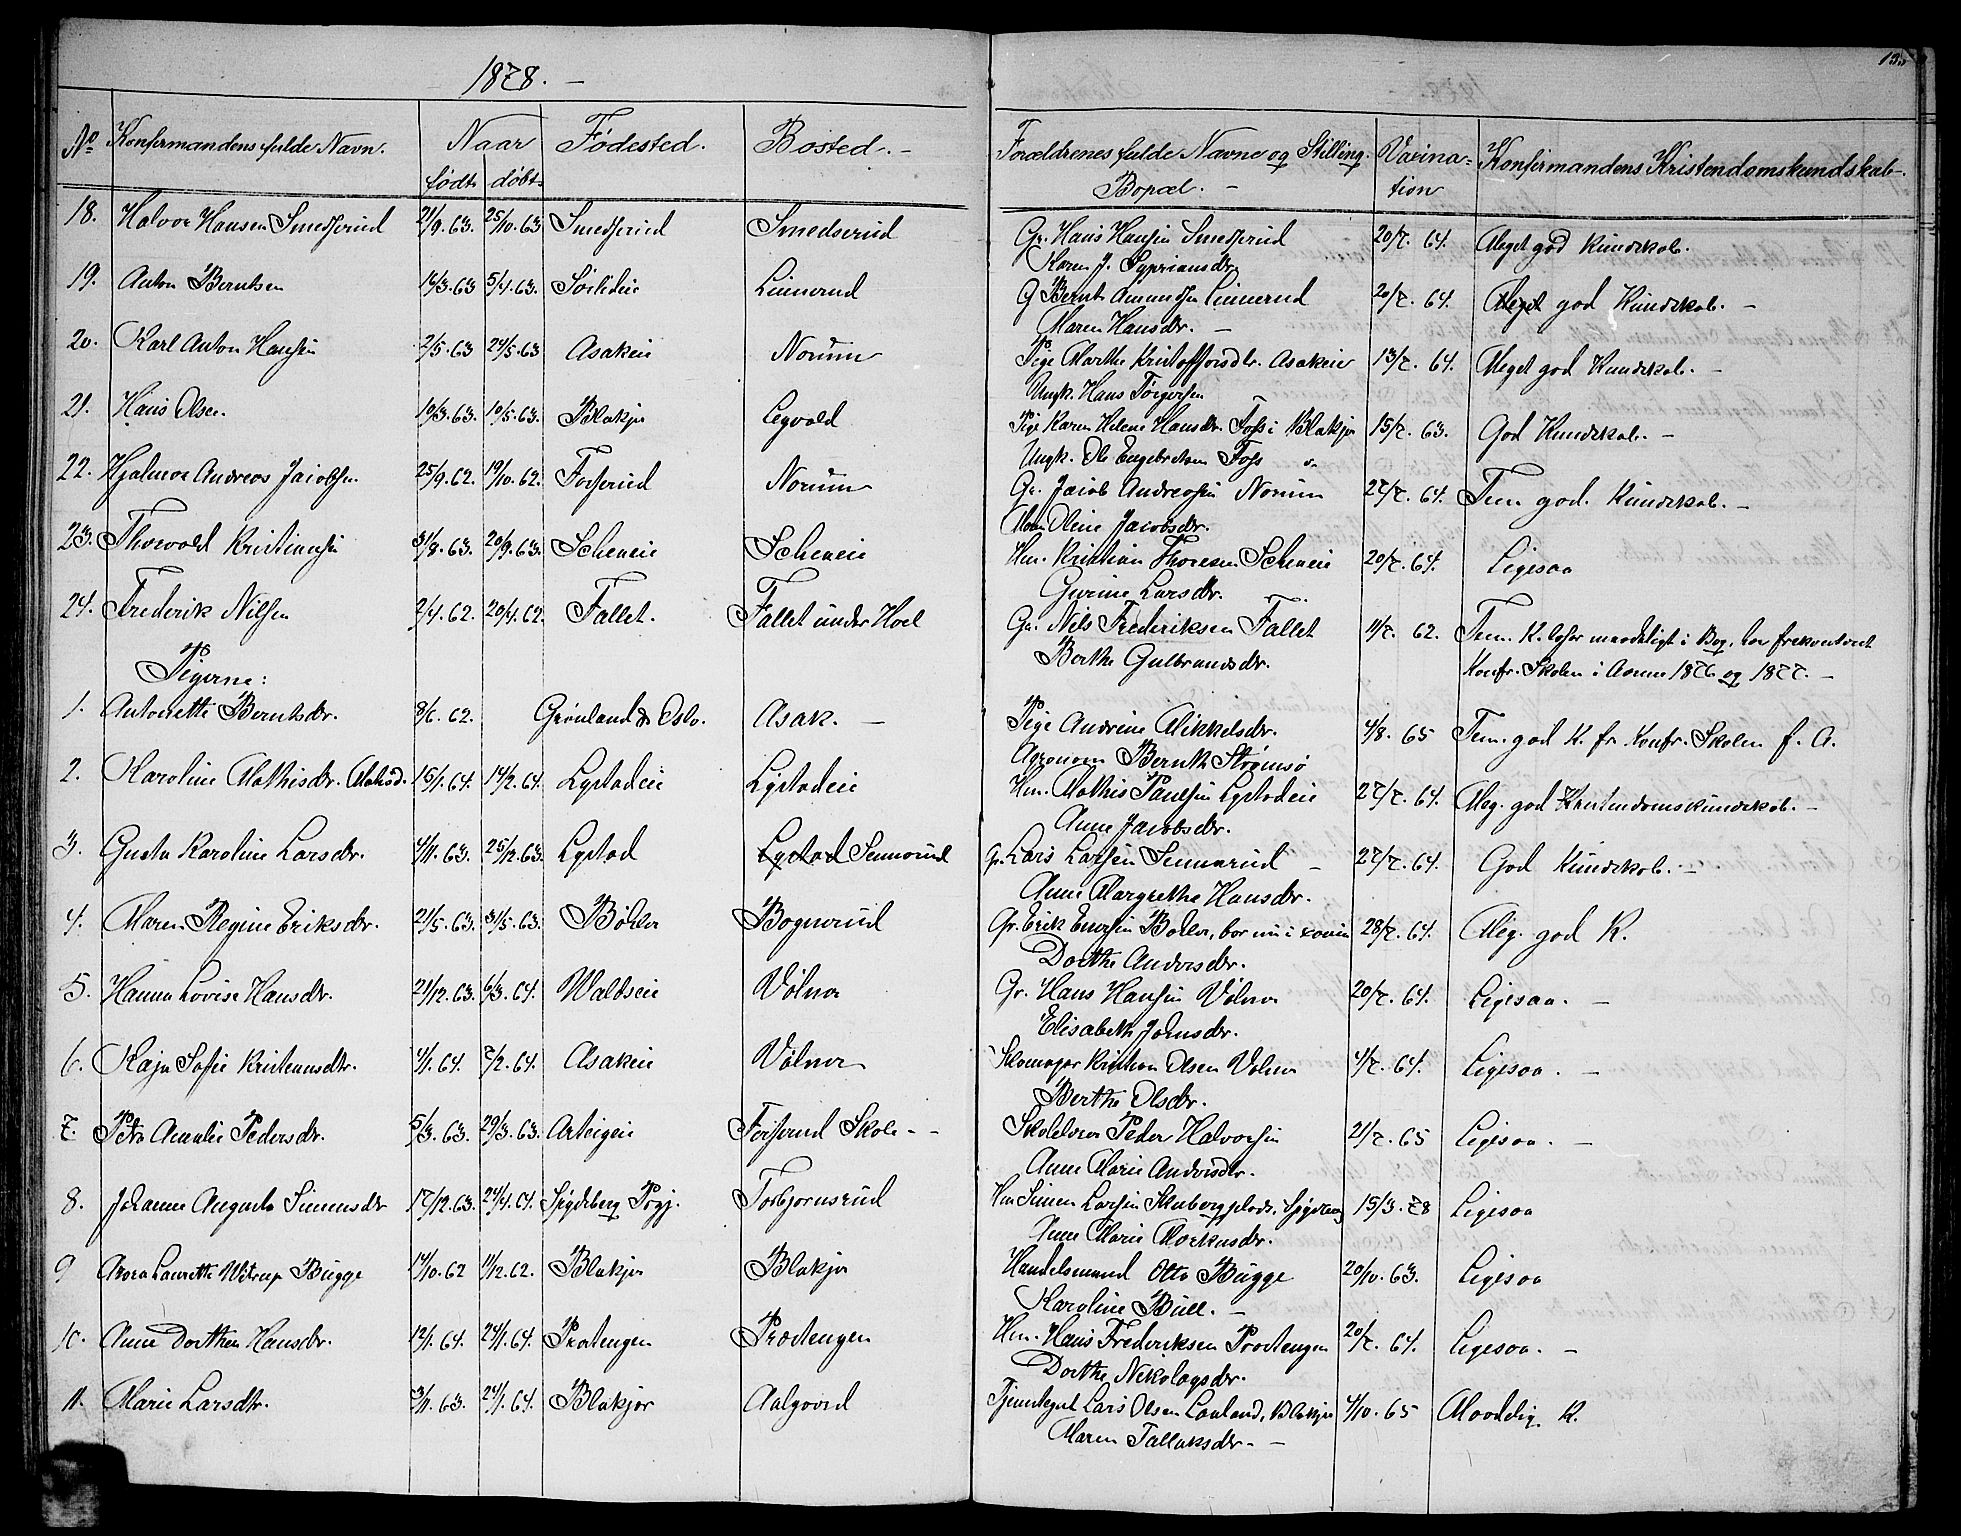 1878. –
No Konfirmandens fulde Navn. Naar Fødested. Bosted. –
født døbt
Forældrenes fulde Navne og Stilling. Vaxina= Konfirmandens Kristendomskundskab –
Bopæl. – tion
18. Halvor Hansen Smedsrud 21/9. 63. 25/10. 63 Smedsrud Smedserud Gr. Hans Hansen Smedsrud 20/7. 64. Meget god Kundskab.
Karen J. Sypriansdr.
19. Anton Berntsen 16/3. 63 5/4. 63. Sørlideie Linnerud G Bernt Amundsen Linnerud 20/7. 64. Meget god Kundskab. –
Maren Hansdr. –
20. Karl Anton Hansen 2/5. 63 24/5. 63 Asakeie Norum Pige Marthe Kristoffersdtr. Asakeie 13/7. 64. Meget god Kundskab. –
Ungk. Hans Torgersen
21. Hans Olsen 10/3. 63. 10/5. 63. Blakjer Legvold Pige Karen Helene Hansdr. Foss i Blakjer 15/7. 63. God Kundskab. –
Ungk. Ole Engebretsen Foss
22. Hjalmar Andreas Jacobsen 25/9. 62. 19/10. 62. Fosserud Norum Gr. Jacob Andreasen Norum 27/7. 64. Tem. god. Kundskab. –
Oline Jacobsdr.
23. Thorvald Kristiansen 31/8. 63. 20/9. 63. Scheneie Scheneie Hm. Kristian Thoresen Scheneie 20/7. 64. Ligesaa
Gurine Larsdr.
24. Frederik Nilsen 2/4. 62. 20/4. 62. Fallet. Fallet under Hoel Gr. Nils Frederiksen Fallet 11/7. 62. Tem. K. læser maadeligt i Bog, har frekventeret
Berthe Gulbrandsdr. Konfr. Skolen i Aarene 1876 og 1877. –
Pigerne:
1. Antonette Berntsdr. 8/6. 62. Grønland & Oslo. Asak. – Pige Andrine Mikkelsdr. 4/8. 65 Tem. god K. fr. Konfr. Skolen f. A.
Agronom Bernth Strømsø
2. Karoline Mathisdr. 15/1. 64. 14/2. 64. Lystadeie Lystadeie Hm. Mathis Paulsen Lystadeie 27/7. 64. Meg. god Kristendomskundskab. –
Anne Jacobsdr.
3. Gusta Karoline Larsdr. 4/11. 63. 25/12. 63. Lystad Lystad Sennerud Gr. Lars Larsen Sennerud – 27/7. 64. God Kundskab. –
Anne Margrethe Hansdr.
4. Maren Regine Eriksdr. 21/5. 63. 31/5. 63. Bøhler Bognerud Gr. Erik Enersen Bøhler, bor nu i 28/7. 64. Meg. god K.
Dorthe Andersdr.
5. Hanna Lovise Hansdr. 21/12. 63. 6/3. 64. Waldseie Vølner Gr. Hans Hansen Vølner 20/7. 64. Ligesaa. –
Elisabeth Johnsdr.
6. Kaja Sofie Kristiansdtr. 4/1. 64. 7/2. 64. Asakeie Vølner Skomager Kristian Olsen Vølner 4/7. 64. Ligesaa. –
Berthe Olsdr.
7. Petra Amalie Pedersdr. 5/3. 63. 29/3. 63. Arteigeie Fosserud Skole – – Skolelærer Peder Halvorsen 21/7. 65 Ligesaa. –
Anne Marie Andersdtr.
8. Johanne Augusta Simensdr 17/12. 63. 24/4. 64. Spydeberg Prgj. Torbjørnsrud Hm Simen Larsen Skulbergplads, Spydeberg 15/3. 78 Ligesaa
Anne Marie Markusdr.
9 Laurette Witrup Bugge 14/10. 62 11/12. 62. Blakjer Blakjer Handelsmand Otto Bugge 20/10. 63. Ligesaa
Karoline Bull. –
10. Anne Dorthea Hansdr. 12/1. 64. 24/1. 64. Prestengen Præstengen Hm. Hans Frederiksen Prestengen 20/7. 64. Ligesaa. –
Dorthe Nikolaysdr.
11. Marie Larsdtr. 3/11. 63. 24/1. 64. Blakjer Aalgaard Tjenestegut Lars Olsen Lauland, Blakjer 4/10. 65 Maadelig K.
Maren Tallaksdr. –